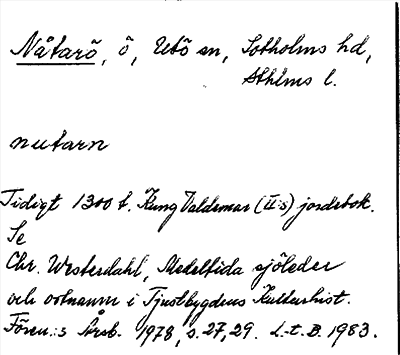 Nåtarö, ö, Utö sn, Sotholms hd,
Sthlms l.
nutarn
Tidigt 1300 t. Kung Valdemar (II:s) jordebok.
Se
Chr. Westerdahl, Medeltida sjöleder
och ortnamn i Tjustbygdens Kulturhist.
Fören.:s Årsb. 1978, s. 27, 29. L-t. B. 1983.